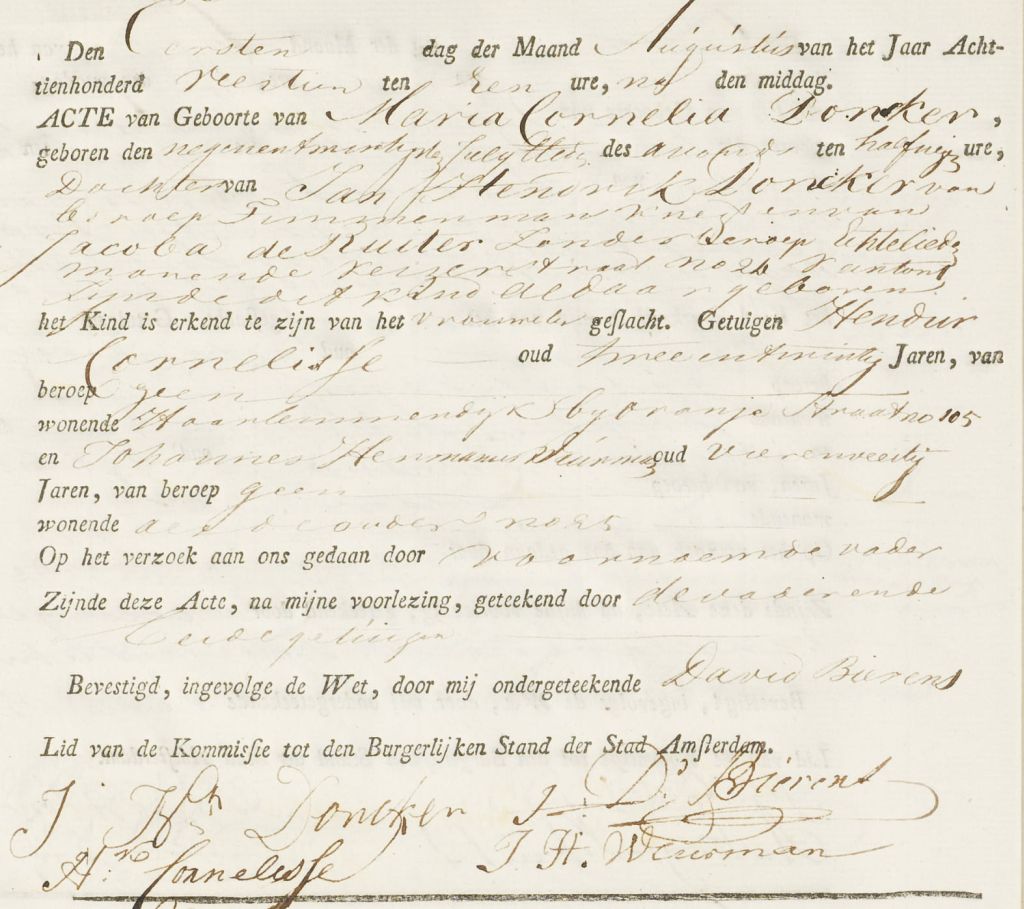 Den Eersten dag der Maand Augustus van het Jaar Acht-
tienhonderd Veertien ten Een ure, na den middag.
ACTE van Geboorte van Maria Cornelia Doncker,
geboren den negenentwintigste July ttleden des avonds ten half negen ure,
Dochter van Jan Hendrik Doncker van
beroep Timmerman Knecht en van
Jacoba de Ruiter Zonder Beroep Echtelieden
wonende Keizerstraat no 26 Kanton 1
Zynde dit kind aldaar geboren.
het Kind is erkend te zijn van het vrouwelyk geslacht. Getuigen Hendrik
Cornelisse oud twee en twintig Jaren, van
beroep geen
wonende Haarlemmerdyk by oranje Straat no 105
en Johannes Hermanus Wuurman oud Vierenveertig
Jaren, van beroep geen
wonende als de ouders no 25
Op het verzoek aan ons gedaan door voornoemde vader
Zijnde deze Acte, na mijne voorlezing, geteekend door de vader ende
beide getuigen
Bevestigd, ingevolge de Wet, door mij ondergeteekende David Bierens
Lid van de Kommissie tot den Burgerlijken Stand der Stad Amsterdam.
J Hk Doncker Dd Bierens
Hn Cornelisse J. H. Wuurman